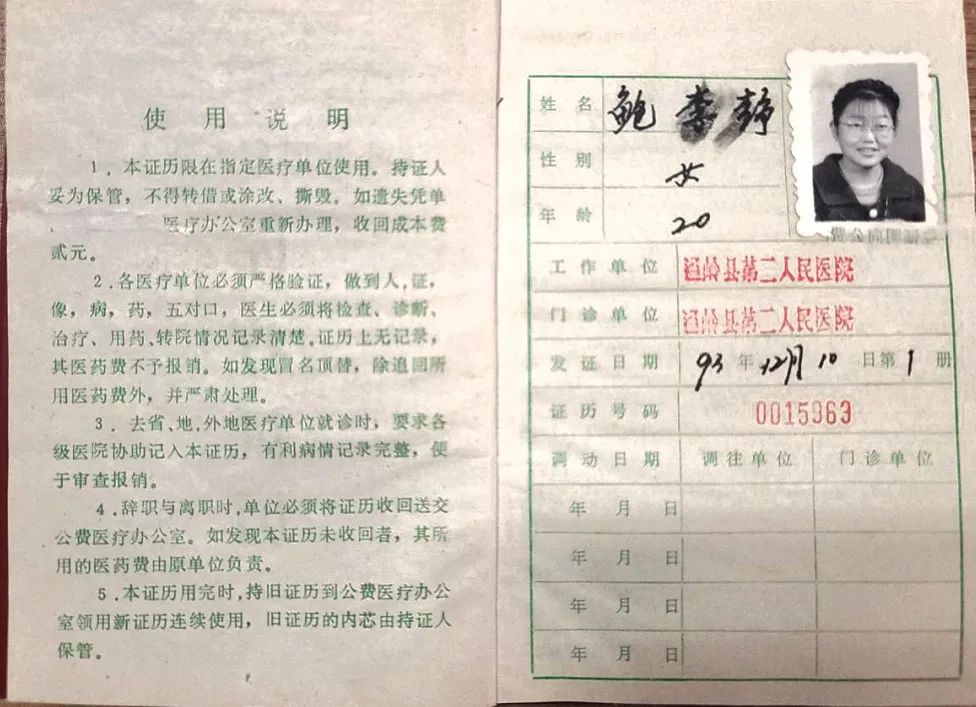 使用说明
1．本证历限在指定医疗单位使用。持证人
妥为保管，不得转借或涂改、撕毁。如遗失凭单
医疗办公室重新办理，收回成本费
贰元。
2．各医疗单位必须严格验证，做到人，证，
像，病，药，五对口，医生必须将检查、诊断、
治疗、用药、转院情况记录清楚。证历上无记录，
其医药费不予报销。如发现冒名顶替，除追回所
用医药费外，并严肃处理。
3．去省、地、外地医疗单位就诊时，要求各
级医院协助记入本证历，有利病情记录完整，便
于审查报销。
4．辞职与离职时，单位必须将证历收回送交
公费医疗办公室。如发现本证历未收回者，其所
用的医药费由原单位负责。
5．本证历用完时，持旧证历到公费医疗办公
室领用新证历连续使用，旧证历的内芯由持证人
保管。
姓名 鲍 静
性别 女
年龄 20
工作单位 县第二人民医院
门诊单位 县第二人民医院
发证日期 93年12月10日第1册
证历号码 0015963
调动日期 调往单位 门诊单位
年 月 日
年 月 日
年 月 日
年 月 日